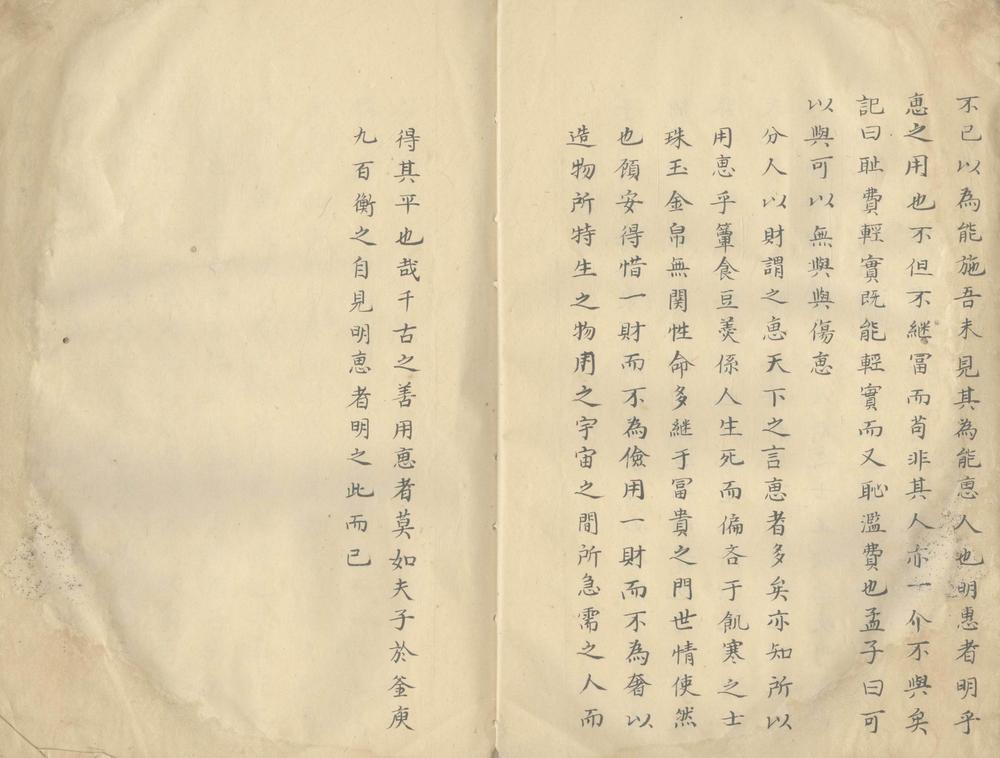 不已以為能施吾未見其為能恵人也明惠者明乎
恵之用也不但不継冨而茍非其人亦一介不與矣
記曰耻費輕實既能輕實而又恥濫費也孟子曰可
以與可以無與與傷恵
分人以財謂之恵天下之言恵者多矣亦知所以
用恵乎簞食豆羹係人生死而偏吝于飢寒之士
珠玉金帛無関性命多継于冨貴之門世情使然
也頋安得惜一財而不為儉用一財而不為奢以
造物所特生之物用之宇宙之間所急需之人而
得其平也哉千古之善用恵者莫如夫子於釜庾
九百衡之自見明恵者明之此而已